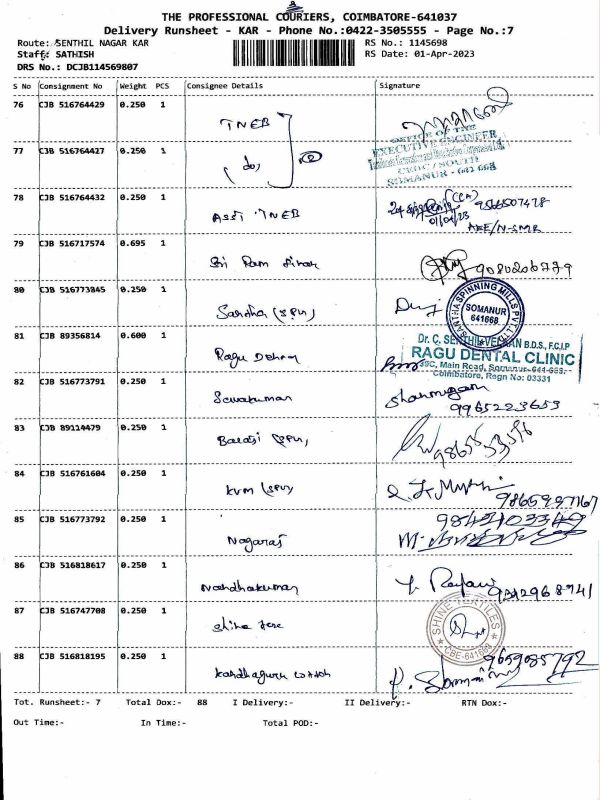 THE PROFESSIONAL COURIERS, COIMBATORE-641037
Delivery Runsheet - KAR - Phone No.:0422-3505555 - Page No.:7
Route: SENTHIL NAGAR KAR
RS No.: 1145698
Staff: SATHISH
RS Date: 01-Apr-2023
DRS No.: DCJB114569807
S No Consignment No Weight PCS Consignee Details Signature
76 CJB 516764429 0.250 1
TNEB
OFFICE OF THE
EXECUTIVE ENGINEER
77 CJB 516764427 0.250 1
(do)
CEDC / SOUTH
SOMANUR - 641 668
78 CJB 516764432 0.250 1
Asst TNEB
9566507478
01/04/23
AEE/N-SMR
79 CJB 516717574 0.695 1
Sri Ram
9080206779
80 CJB 516773845 0.250 1
SANTHA SPINNING MILLS PVT LTD
SOMANUR
641668
81 CJB 89356814 0.600 1
Ragu
Dr. C. SENTHIL VELAN B.D.S., F.C.I.P
RAGU DENTAL CLINIC
39C, Main Road, Somanur-641 668.
Coimbatore, Regn No: 03331
82 CJB 516773791 0.250 1
Sevakumar
Shanmugam
9965223653
83 CJB 89114479 0.250 1
Balaji
84 CJB 516761604 0.250 1
KVM
85 CJB 516773792 0.250 1
Nagaraj
9842403349
86 CJB 516818617 0.250 1
Nandhakumar
87 CJB 516747708 0.250 1
Shine Tex
SHINE TEXTILES
CBE-641668
88 CJB 516818195 0.250 1
Kandhaguru cotton
9659085792
Tot. Runsheet:- 7 Total Dox:- 88 I Delivery:- II Delivery:- RTN Dox:-
Out Time:- In Time:- Total POD:-